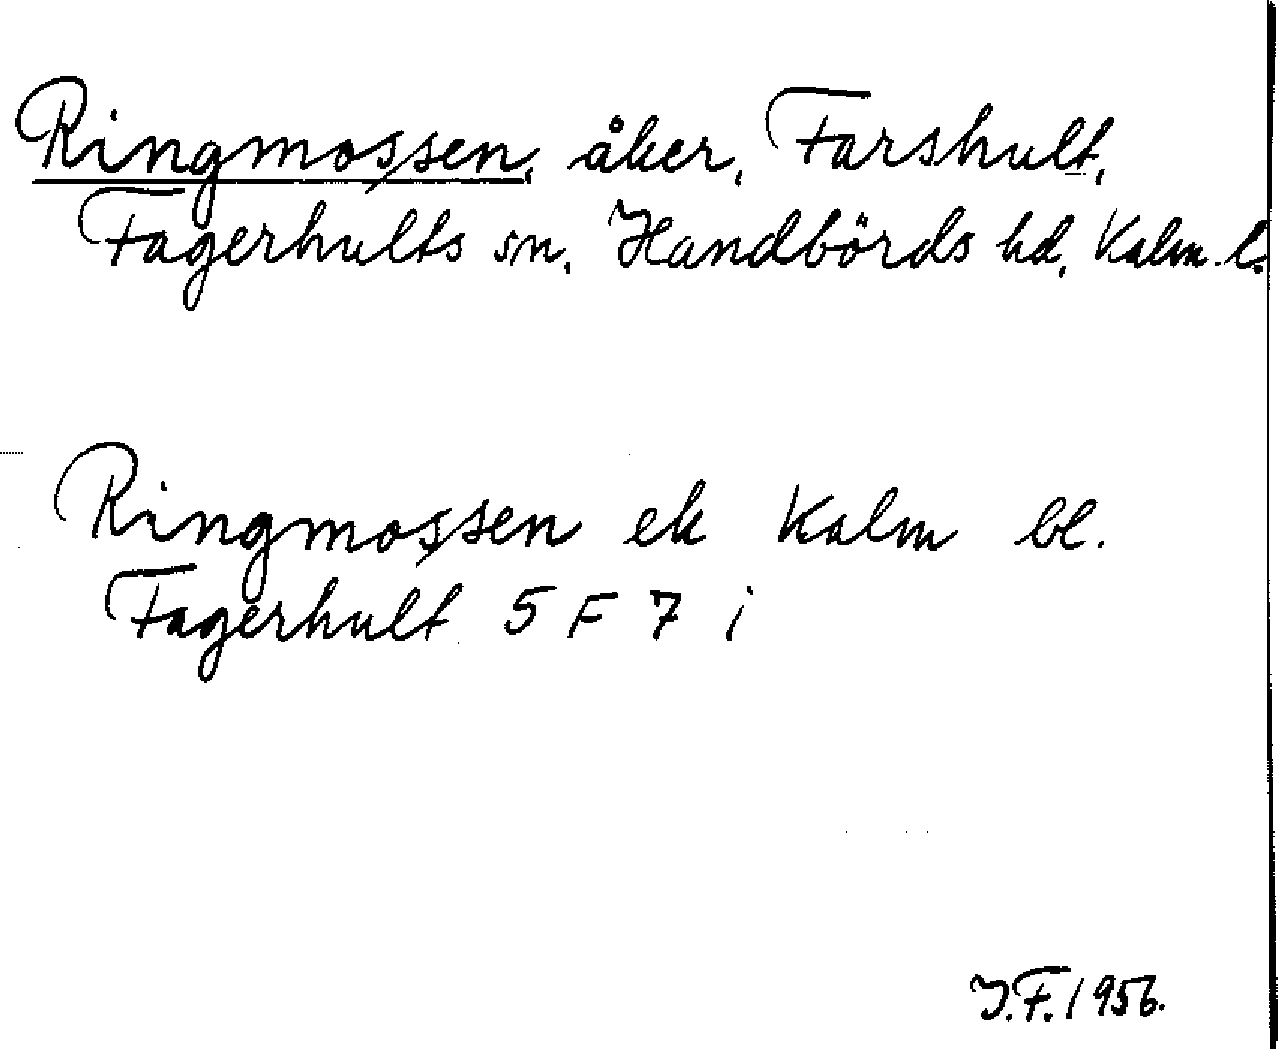 Ringmossen, åker, Farshult,
Fagerhults sn, Handbörds hd, Kalm. l.
Ringmossen ek Kalm bl.
Fagerhult 5 F 7 i
J.F. 1956.